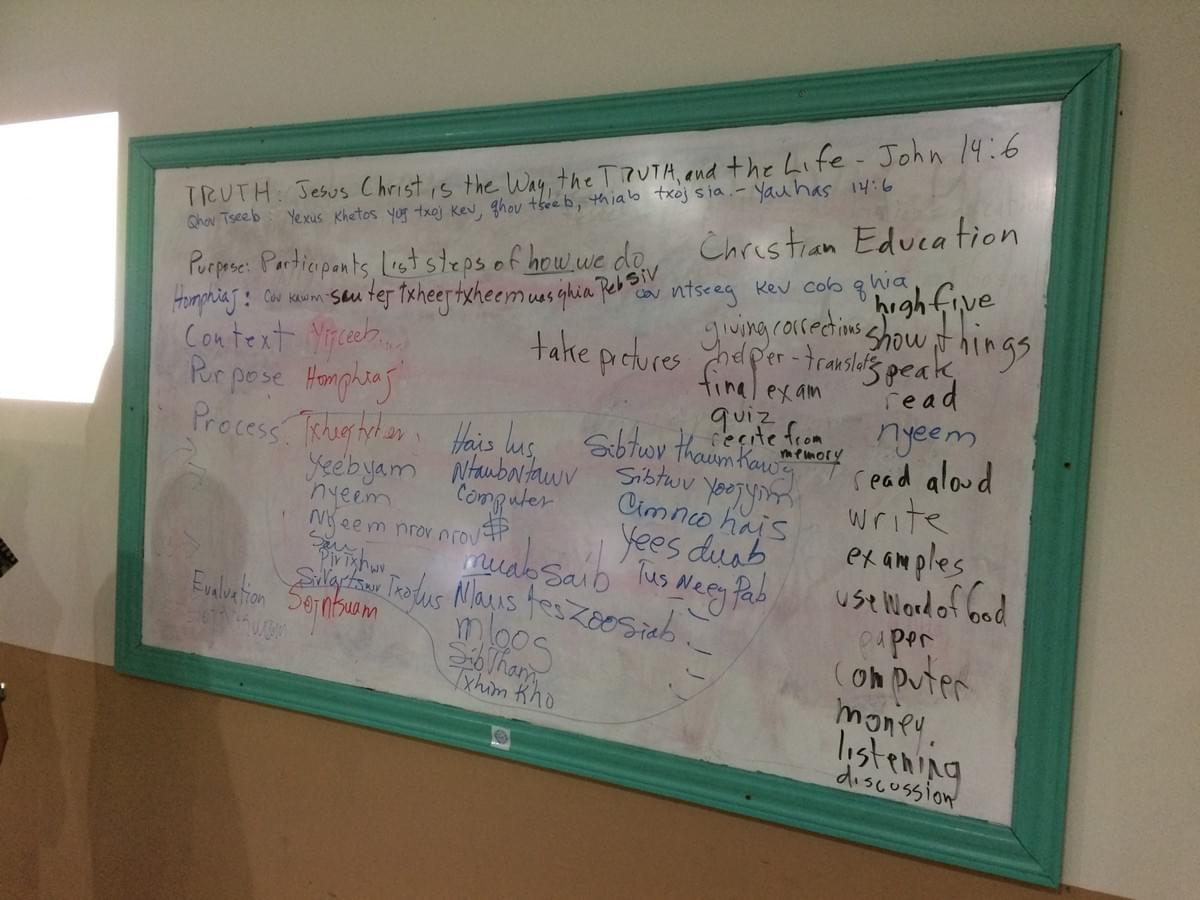 TRUTH: Jesus Christ is the Way, the TRUTH, and the Life - John 14:6
Qhov Tseeb: Yexus Khetos yog txoj kev, qhov tseeb, thiab txoj sia. - Yauhas 14:6
Purpose: Participants List steps of how we do Christian Education
Homphiaj: Cov kawm - sau tej Txheejtxheem uas qhia Peb Siv cov ntseeg kev cob qhia
Context Yijceeb...
Purpose Homphiaj
Process:
Yeebyam
nyeem
Nyeem nrov nrov
Sau
Evaluation Sojntsuam
Hais lus
NtaubNtawv
Computer
$
muab Saib
mloos
SibTham
Txhim Kho
take pictures
Sibtwv thaum Kawg
Sibtwv Yoojyim
Cim nco hais
Yees duab
Tus Neeg Pab
giving corrections
helper - translate
final exam
quiz
recite from
memory
high five
show things
speak
read
nyeem
read aloud
write
examples
use Word of God
paper
computer
money
listening
discussion